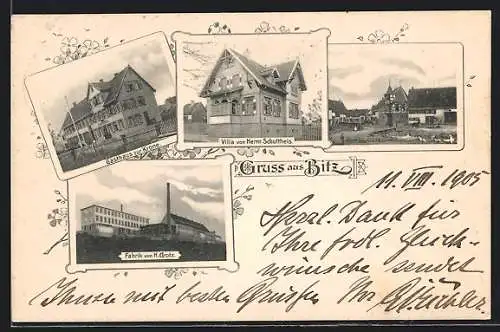 Gasthaus zur Krone.
Villa von Herrn Schultheis.
Gruss aus Bitz
Fabrik von H. Grotz.
11. VIII. 1905
Herzl. Dank für
Ihre frdl. Glück-
wünsche sendet
Ihnen mit besten Grüssen Ihr